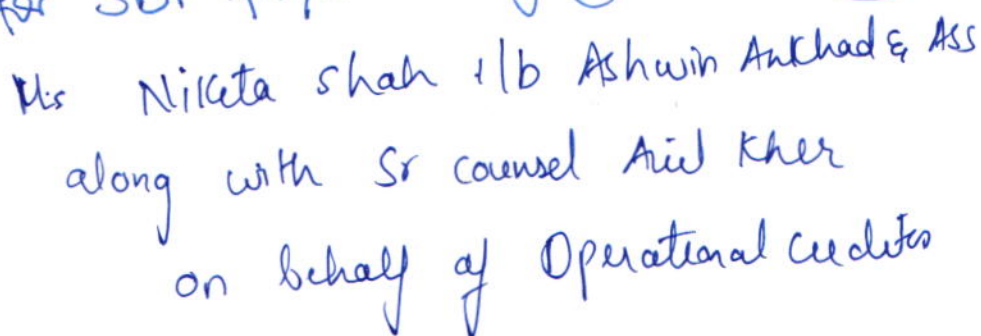 for SBI
Ms Niketa Shah i/b Ashwin Ankhad & Ass
along with Sr counsel Anil Kher
on behalf of Operational Creditor